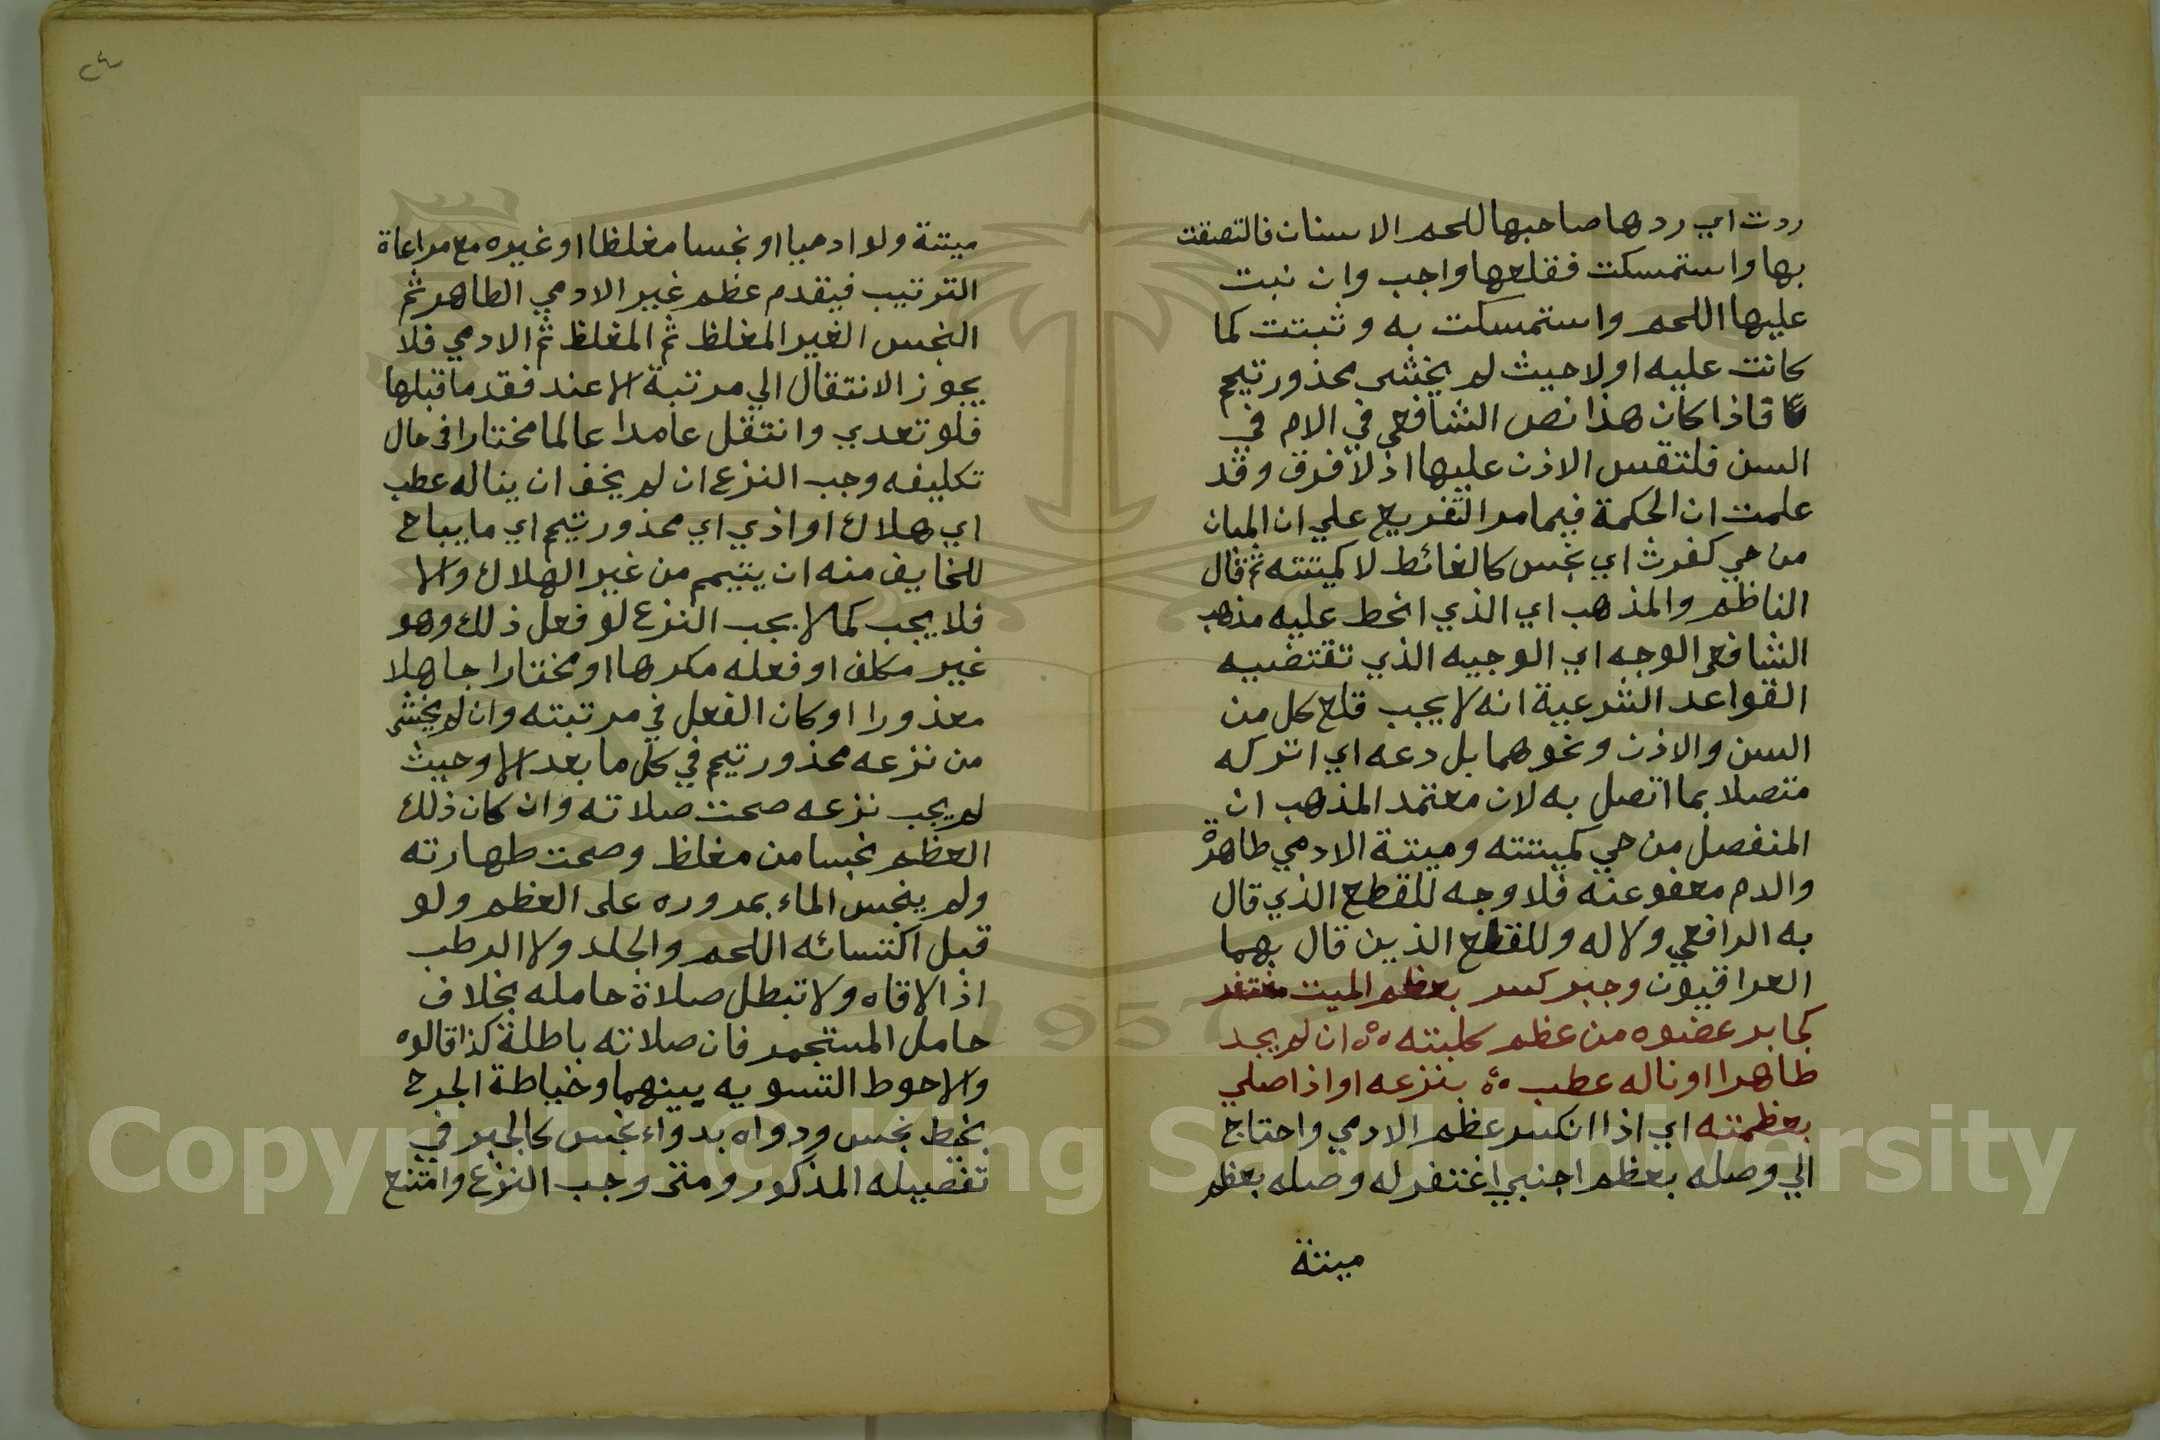 ردت اي ردها صاحبها للحم الاسنان فالتصقت
بها واستمسكت فقلعها واجب وان نبت
عليها اللحم واستمسكت به وثبتت كما
كانت عليه اولا حيث لم يخش محذور تيمم
فاذا كان هذا نص الشافعي في الام في
السن فلتقس الاذن عليها اذ لا فرق وقد
علمت ان الحكمة فيما مر التفريع علي ان المبان
من حي كفرث اي نجس كالغائط لا كميتته ثم قال
الناظم والمذهب اي الذي انحط عليه مذهب
الشافعي الوجه اي الوجيه الذي تقتضيه
القواعد الشرعية انه لا يجب قلع كل من
السن والاذن ونحوهما بل دعه اي اتركه
متصلا بما اتصل به لان معتمد المذهب ان
المنفصل من حي كميتته وميتة الادمي طاهرة
والدم معفو عنه فلا وجه للقطع الذي قال
به الرافعي ولا له وللقلع الذين قال بهما
العراقيون وجبر كسر بعظم الميت مغتفر
كجابر عضوه من عظم كلبته ان لم يجد
طاهرا او ناله عطب بنزعه او اذا صلي
بعظمته اي اذا انكسر عظم الادمي واحتاج
الي وصله بعظم اجنبي اغتفر له وصله بعظم
ميتة
٢٤
ميتة ولو ادميا او نجسا مغلظا او غيره مع مراعاة
الترتيب فيقدم عظم غير الادمي الطاهر ثم
النجس الغير المغلظ ثم المغلظ ثم الادمي فلا
يجوز الانتقال الي مرتبة الا عند فقد ما قبلها
فلو تعدي وانتقل عامدا عالما مختارا في حال
تكليفه وجب النزع ان لم يخف ان يناله عطب
اي هلاك او اذي اي محذور تيمم اي ما يباح
للخايف منه ان يتيمم من غير الهلاك والا
فلا يجب كما لا يجب النزع لو فعل ذلك وهو
غير مكلف او فعله مكرها او مختارا جاهلا
معذورا او كان الفعل في مرتبته وان لم يخش
من نزعه محذور تيمم في كل ما بعد الا وحيث
لم يجب نزعه صحت صلاته وان كان ذلك
العظم نجسا من مغلظ وصحت طهارته
ولم ينجس الماء بمروره على العظم ولو
قبل اكتسائه اللحم والجلد ولا الرطب
اذا لاقاه ولا تبطل صلاة حامله بخلاف
حامل المستجمر فان صلاته باطلة كذا قالوه
والاحوط التسويه بينهما وخياطة الجرح
بخيط نجس ودواه بدواء نجس كالجبر في
تفصيله المذكور ومتى وجب النزع وامتنع
Copyright © King Saud University
1957